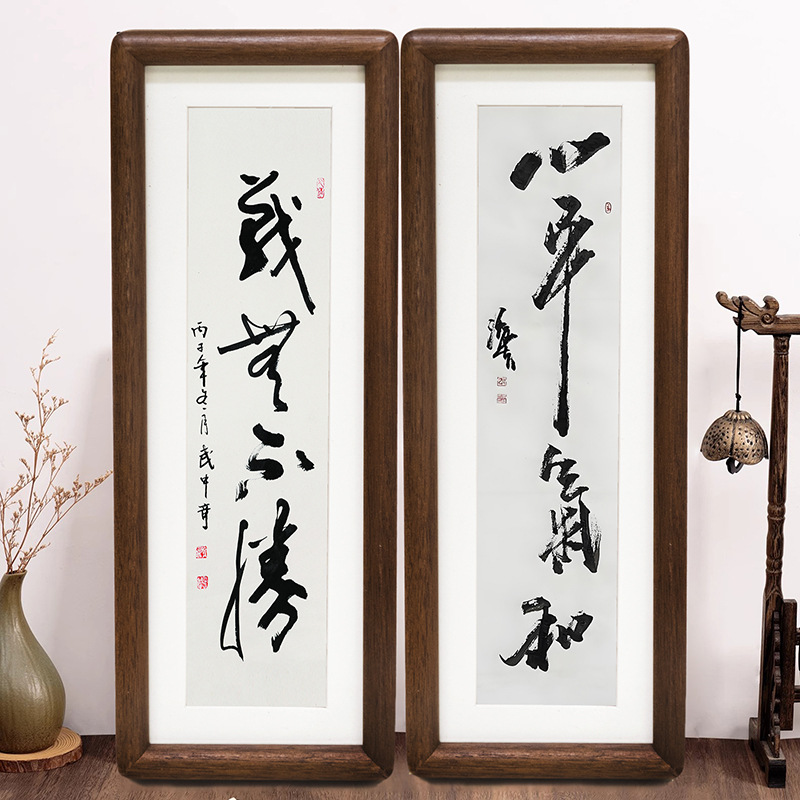 心平氣和
戰無不勝
丙子年冬月 武中奇